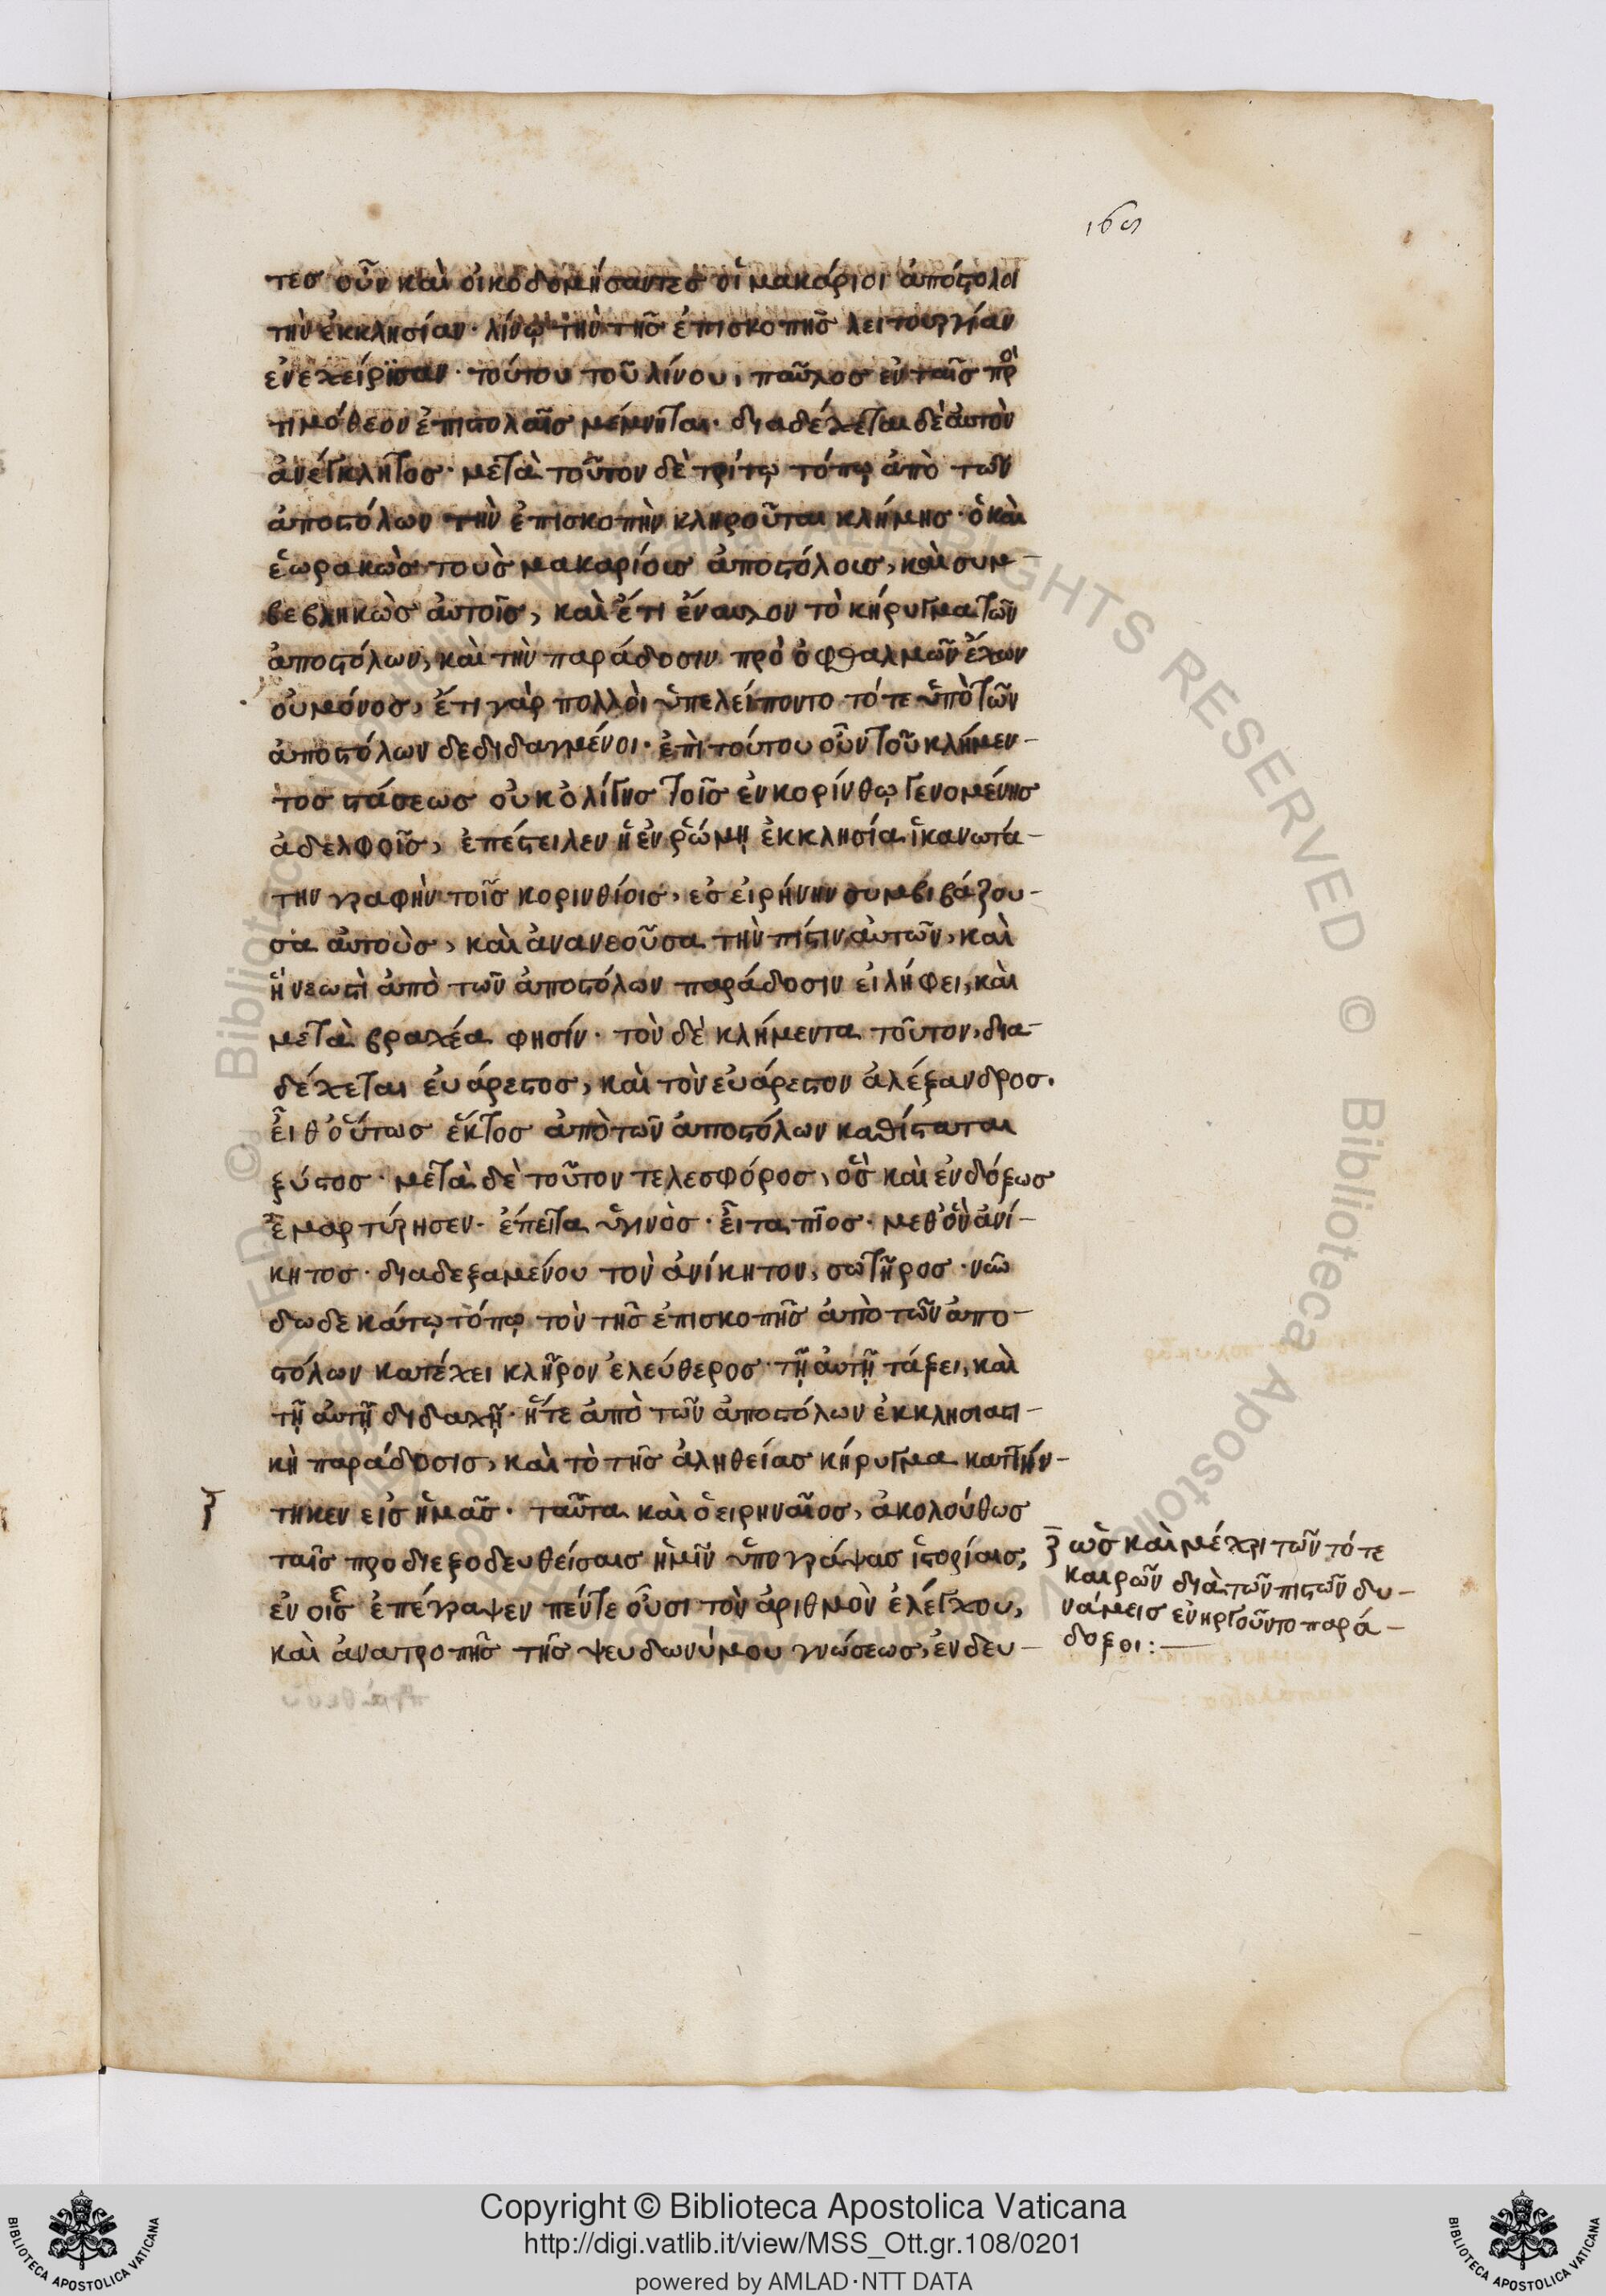 169
τεσ οὖν καὶ οἰκοδομήσαντεσ οἱ μακάριοι ἀπόστολοι
τὴν ἐκκλησίαν· λίνῳ τὴν τῆσ ἐπισκοπῆσ λειτουργίαν
ἐνεχείρισαν· τούτου τοῦ λίνου, παῦλοσ ἐν ταῖσ πρ
τιμόθεον ἐπιστολαῖσ μέμνηται· διαδέχεται δὲ αὐτὸν
ἀνέγκλητοσ· μετὰ τοῦτον δὲ τρίτῳ τόπῳ ἀπὸ τῶν
ἀποστόλων τὴν ἐπισκοπὴν κληροῦται κλήμησ· ὁ καὶ
ἑωρακὼσ τοὺσ μακαρίουσ ἀποστόλουσ, καὶ συμ-
βεβληκὼσ αὐτοῖσ, καὶ ἔτι ἔναυλον τὸ κήρυγμα τῶν
ἀποστόλων, καὶ τὴν παράδοσιν πρὸ ὀφθαλμῶν ἔχων
οὐ μόνοσ, ἔτι γὰρ πολλοὶ ὑπελείποντο τότε ὑπὸ τῶν
ἀποστόλων δεδιδαγμένοι· ἐπὶ τούτου οὖν τοῦ κλήμεν-
τοσ στάσεωσ οὐκ ὀλίγησ τοῖσ ἐν κορίνθῳ γενομένησ
ἀδελφοῖσ, ἐπέστειλεν ἡ ἐν ῥώμῃ ἐκκλησία ἱκανωτά-
την γραφὴν τοῖσ κορινθίοισ, εἰσ εἰρήνην συμβιβάζου-
σα αὐτοὺσ, καὶ ἀνανεοῦσα τὴν πίστιν αὐτῶν, καὶ
ἣν νεωστὶ ἀπὸ τῶν ἀποστόλων παράδοσιν εἰλήφει, καὶ
μετὰ βραχέα φησίν· τὸν δὲ κλήμεντα τοῦτον, δια-
δέχεται εὐάρεστοσ, καὶ τὸν εὐάρεστον ἀλέξανδροσ.
εἶθ' οὕτωσ ἕκτοσ ἀπὸ τῶν ἀποστόλων καθίσταται
ξύστοσ· μετὰ δὲ τοῦτον τελεσφόροσ, ὃσ καὶ ἐνδόξωσ
ἐμαρτύρησεν· ἔπειτα ὑγινὸσ· εἶτα πῖοσ· μεθ' ὃν ἀνί-
κητοσ· διαδεξαμένου τὸν ἀνίκητον, σωτῆροσ· νῦν
δωδεκάτῳ τόπῳ τὸν τῆσ ἐπισκοπῆσ ἀπὸ τῶν ἀπο-
στόλων κατέχει κλῆρον ἐλεύθεροσ· τῇ αὐτῇ τάξει, καὶ
τῇ αὐτῇ διδαχῇ· ἥτε ἀπὸ τῶν ἀποστόλων ἐκκλησιαστι-
κὴ παράδοσισ, καὶ τὸ τῆσ ἀληθείασ κήρυγμα κατήν-
τηκεν εἰσ ἡμᾶσ· ταῦτα καὶ ὁ εἰρηναῖοσ, ἀκολούθωσ
ταῖσ προδιεξοδευθείσαισ ἡμῖν ὑπογράψασ ἱστορίαισ,
ἐν οἷσ ἐπέγραψεν πέντε οὖσι τὸν ἀριθμὸν ἐλέγχου,
καὶ ἀνατροπῆσ τῆσ ψευδωνύμου γνώσεωσ, ἐν δευ-
ὡσ καὶ μέχρι τῶν τότε
καιρῶν διὰ τῶν πιστῶν δυ-
νάμεισ ἐνηργοῦντο παρά-
δοξοι:-
Copyright © Biblioteca Apostolica Vaticana
http://digi.vatlib.it/view/MSS_Ott.gr.108/0201
powered by AMLAD·NTT DATA
BIBLIOTECA APOSTOLICA VATICANA
BIBLIOTECA APOSTOLICA VATICANA